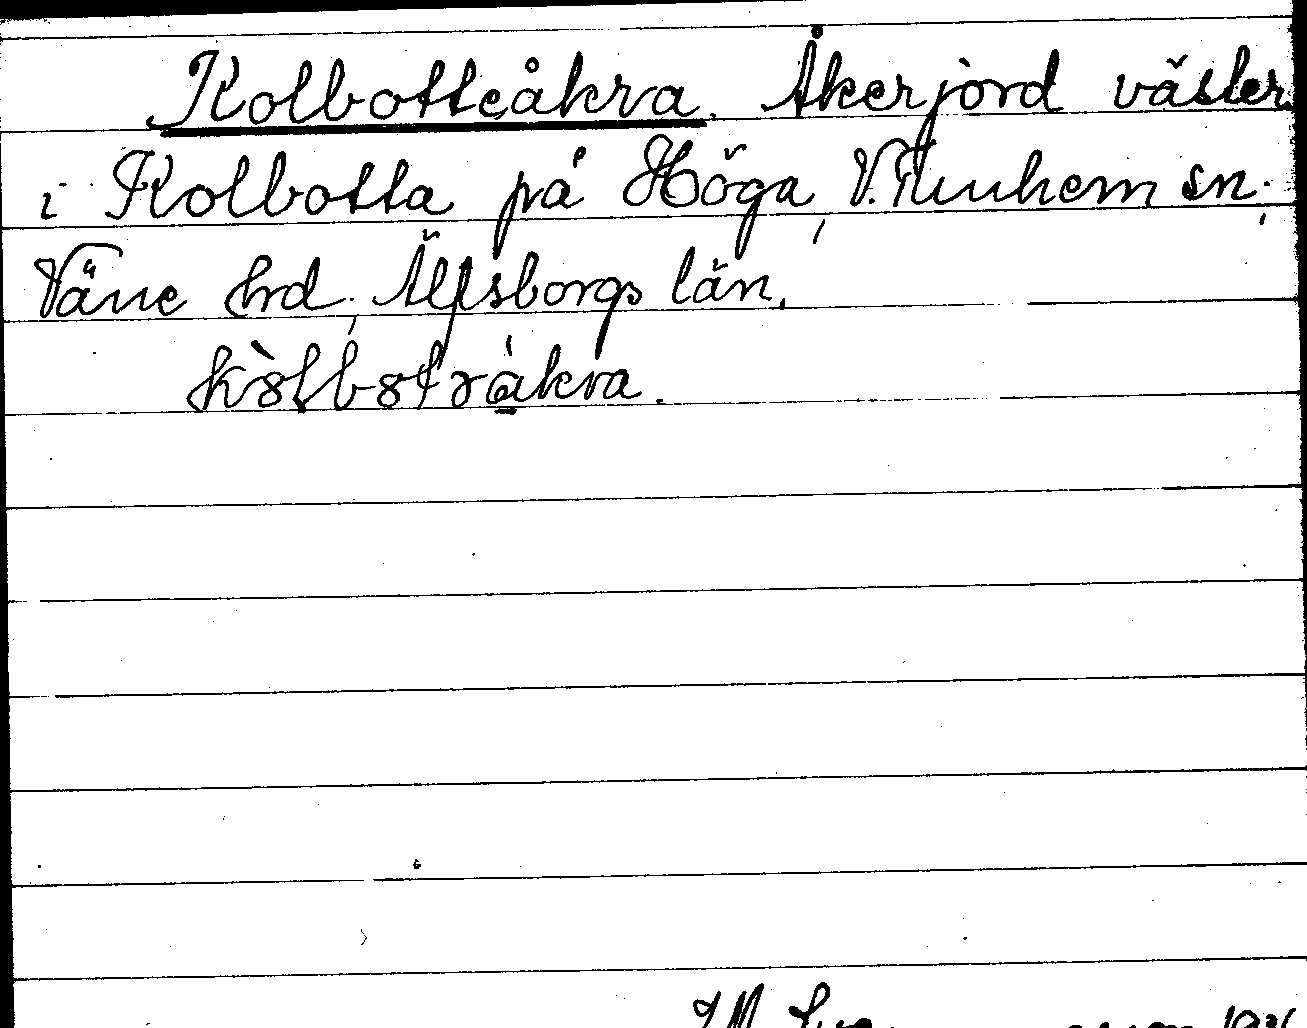 Kolbotteåkra. Åkerjord väster
i Kolbotta på Höga, V. Tunhem sn.,
Väne hd, Älfsborgs län.